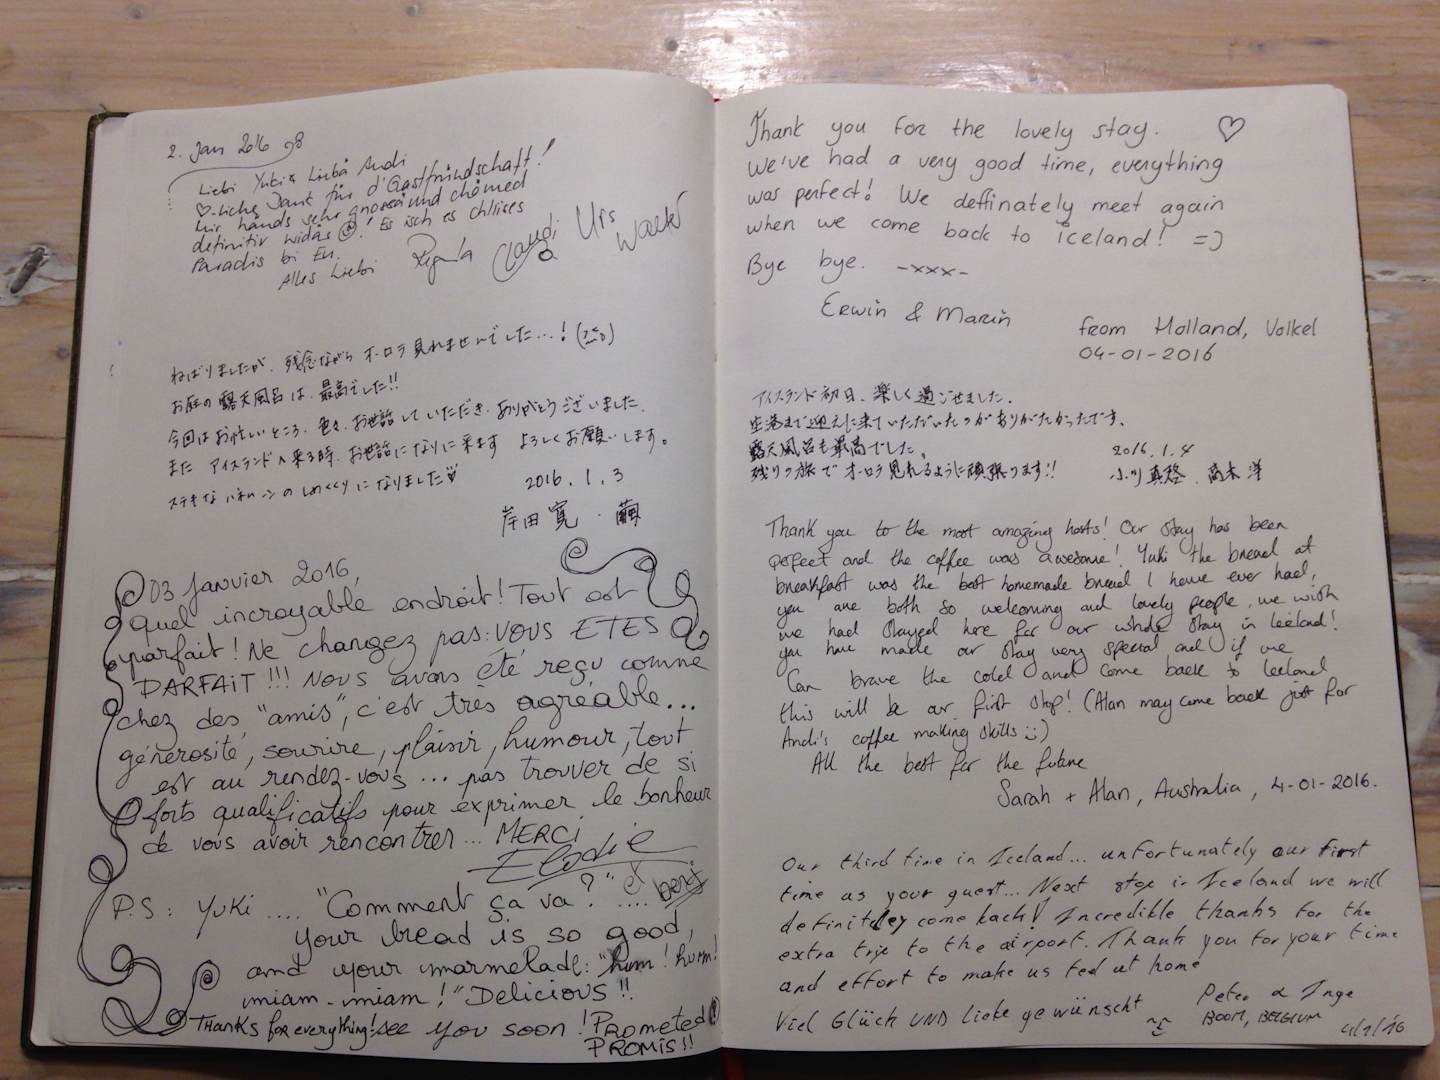 2. Jan 2016
Liebi Yuki & Liebä Andi
♡-liche Dank für d'Gastfründschaft!
Mir händs sehr gnosse und chömed
definitiv widä ☺! Es isch es chliises
Paradis bi Eu.
Alles Liebi Regula Claudi Urs Walter
ねばりましたが、残念ながら オーロラ見れませんでした…!
お庭の露天風呂は、最高でした!!
今回はお忙しいところ、色々、お世話していただき、ありがとうございました。
また アイスランドへ来る時、お世話になりに来ます よろしくお願いします。
ステキなハネムーンのしめくくりになりました
2016.1.3
岸田 寛・繭
03 Janvier 2016,
Quel incroyable endroit! Tout est
parfait! Ne changez pas: VOUS ETES
PARFAIT!!! Nous avons été reçu comme
chez des "amis", c'est très agréable...
générosité, sourire, plaisir, humour, tout
est au rendez-vous... pas trouver de si
forts qualificatifs pour exprimer le bonheur
de vous avoir rencontrer... MERCI
Elodie
et Benj
P.S: Yuki.... "Comment ça va?"....
your bread is so good,
and your marmelade: "hum! hum!
miam-miam!" Delicious!!
Thanks for everything! see you soon! Prometed
PROMIS!!
Thank you for the lovely stay. ♡
We've had a very good time, everything
was perfect! We deffinately meet again
when we come back to iceland! =)
Bye bye. -xxx-
Erwin & Marin
from Holland, Volkel
04-01-2016
アイスランド初日、楽しく過ごせました。
空港まで迎えに来ていただいたのがありがたかったです。
露天風呂も最高でした。
残りの旅でオーロラ見れるように頑張ります!!
2016.1.4
小川真啓、高木洋
Thank you to the most amazing hosts! Our stay has been
perfect and the coffee was awesome! Yuki the bread at
breakfast was the best homemade bread I have ever had,
you are both so welcoming and lovely people, we wish
we had stayed here for our whole stay in Iceland!
you have made our stay very special and if we
Can brave the cold and come back to Iceland
this will be our first stop! (Alan may come back just for
Andi's coffee making skills :))
All the best for the future
Sarah + Alan, Australia, 4-01-2016.
Our third time in Iceland... unfortunately our first
time as your guest... Next stop in Iceland we will
definitley come back! Incredible thanks for the
extra trip to the airport. Thank you for your time
and effort to make us feel at home
Viel Glück UND Liebe gewünscht
Peter & Inge
BOOM, BELGIUM
4/1/'16